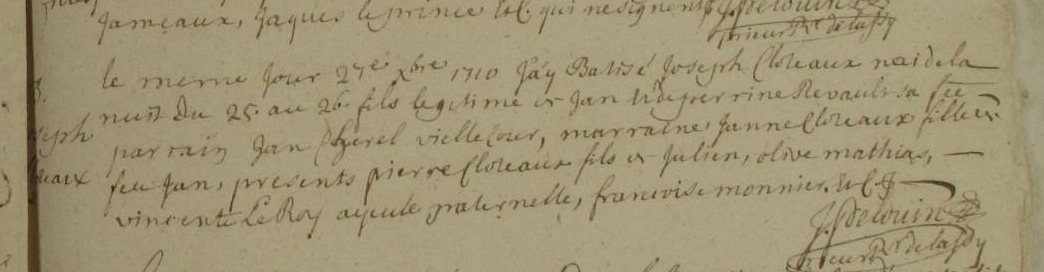 Jameaux, Jaques leprince &c. qui ne signent J. Delouin
prieur Rr delassy
le meme Jour 27e Xbre 1710 J'ay Batisé Joseph Cloteaux né de la
nuit Du 25. au 26. fils legitime de Jan & de perrine Revault sa fe
parrain Jan Cherel vielle Cour, marraine Janne Cloteaux fille de
feu Jan, presents pierre Cloteaux fils de Julien, olive mathias,
vincente Le Roy ayeule paternelle, francoise monnier. &c.
J. Delouin
prieur Rr delassy
seph
teaux